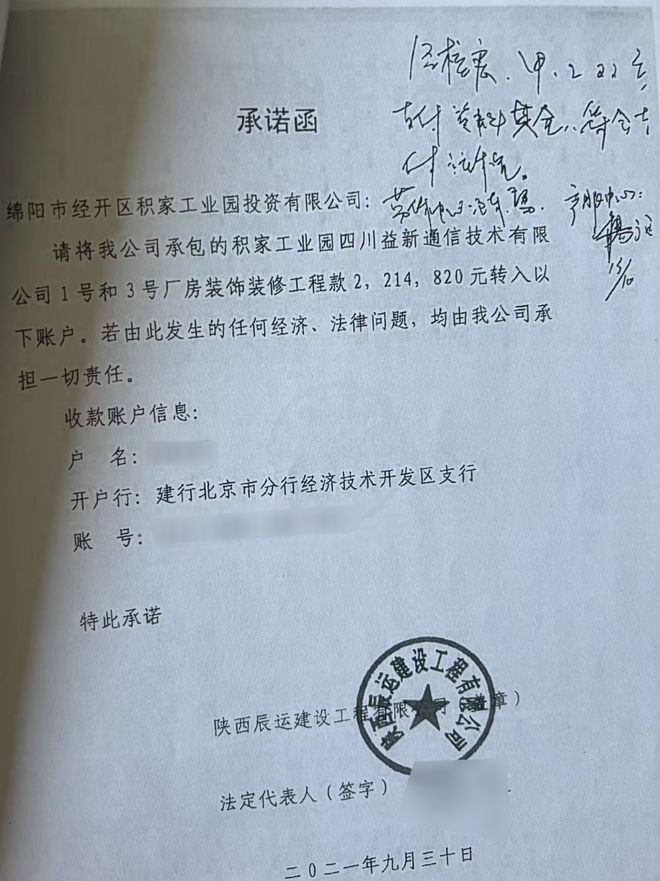 经核实、
承诺函
绵阳市经开区积家工业园投资有限公司：
请将我公司承包的积家工业园四川益新通信技术有限
公司1号和3号厂房装饰装修工程款2，214，820元转入以
下账户。若由此发生的任何经济、法律问题，均由我公司承
担一切责任。
收款账户信息：
户 名：
开户行：建行北京市分行经济技术开发区支行
账 号：
特此承诺
陕西辰运建设工程有限公司 章）
陕西辰运建设工程有限公司
法定代表人（签字）
二〇二一年九月三十日